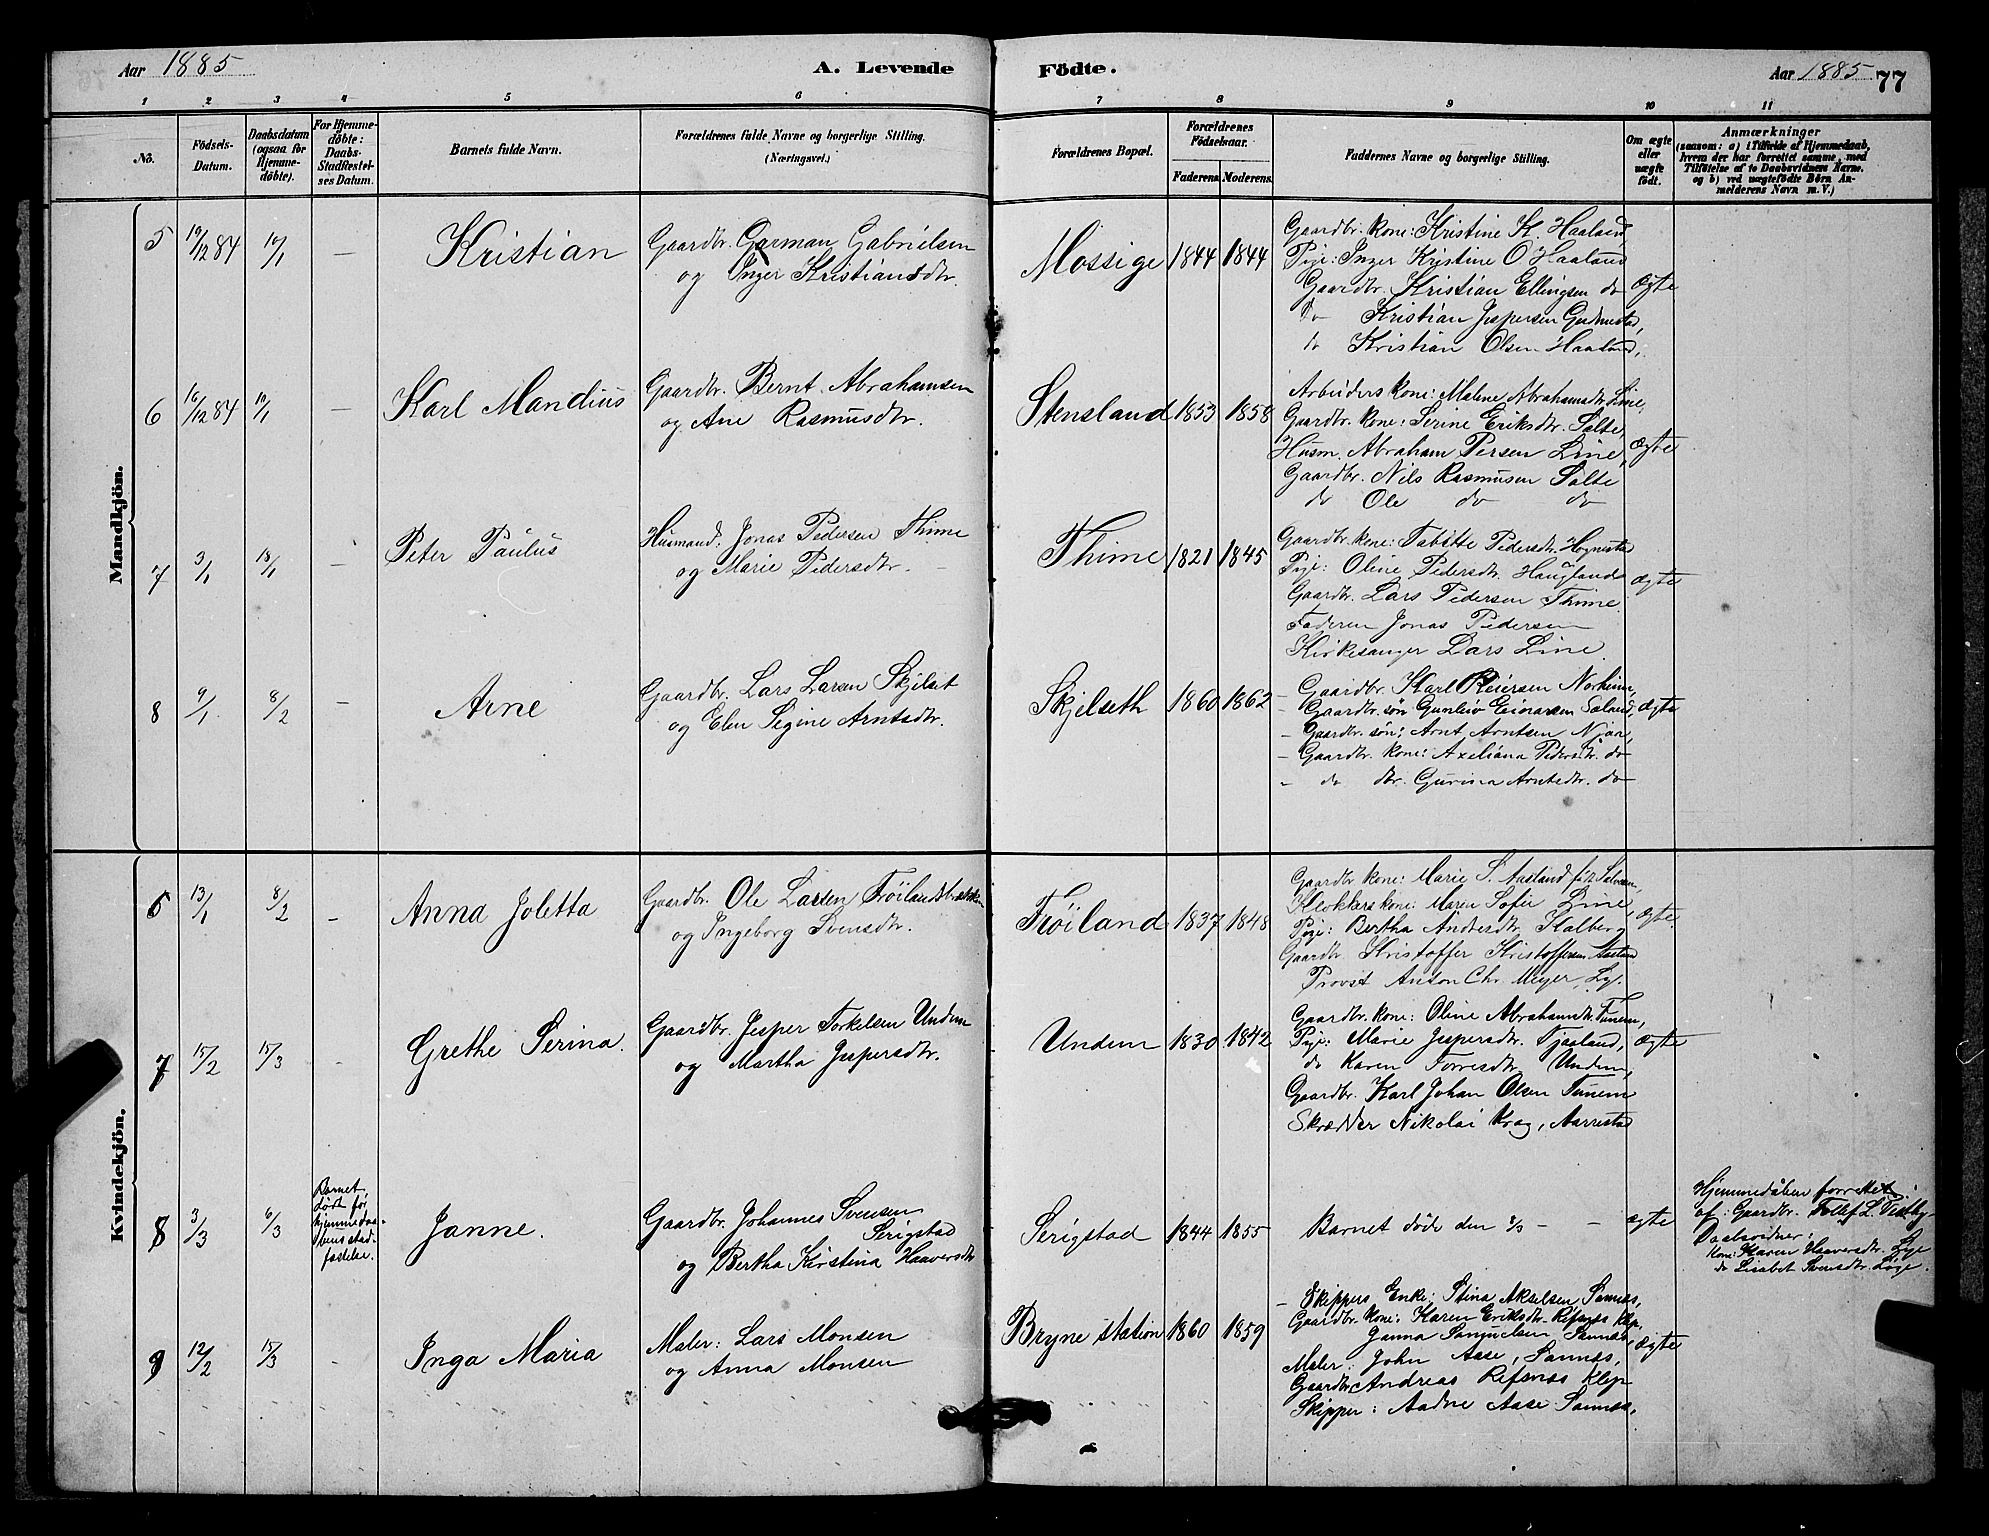 Aar 1885
A. Levende
Födte.
Aar 1885
77
1 2 3 4 5 6 7 8 9 10 11
No.
Födsels-
Datum.
Daabsdatum
(ogsaa for
Hjemme-
döbte).
For Hjemme-
döbte:
Daabs-
Stadfæstel-
ses Datum.
Barnets fulde Navn.
Forældrenes fulde Navne og borgerlige Stilling.
(Næringsvei.)
Forældrenes Bopæl.
Forældrenes
Födselsaar.
Faderens. Moderens.
Faddernes Navne og borgerlige Stilling.
Om ægte
eller
uægte
födt.
Anmærkninger
(saasom: a) i Tilfælde af Hjemmedaab,
hvem der har forrettet samme, med
Tilföielse af to Daabsvidners Navne.
og b) ved uægtefödte Börn An-
melderens Navn m. V.)
Mandkjön.
5 19/12 84 10/1 — Kristian
Gaardbr. Garman Gabrielsen
og Inger Kristiansdtr.
Mossige 1844 1844
Gaardbr. kone: Kristine K. Haaland,
Pige: Inger Kristine O. Haaland
Gaardbr. Kristian Ellingsen do
do Kristian Jespersen Gudmestad,
do Kristian Olsen Haaland,
ægte
6 16/12 84 10/1 — Karl Mandius
Gaardbr. Bernt Abrahamsen
og Ane Rasmusdtr.
Stensland 1853 1858
Arbeiders kone: Malene Abrahamsdtr. Line,
Gaardbr. kone: Serine Eriksdtr. Salte,
Husm. Abraham Persen Line,
Gaardbr. Nils Rasmusen Salte
do Ole do do
ægte
7 3/1 18/1 — Peter Paulus
Husmand. Jonas Pedersen Thime
og Marie Pedersdtr. —
Thime 1821 1845
Gaardbr. kone: Tabitte Pedersdtr.
Pige: Oline Pedersdtr. Haugland
Gaardbr. Lars Pedersen Thime.
Faderen Jonas Pedersen
Kirkesanger Lars Line.
ægte
8 9/1 8/2 — Arne
Gaardbr. Lars Larsen Skjelset
og Elen Segine Arntsdtr.
Skjelseth 1860 1862
— Gaardbr. Karl Reiersen Norheim,
— Gaardbr. søn Gunleiv Einarsen
— Gaardbr. søn: Arnt Arntsen Njaa,
— Gaardbr. kone: Axeliana Pedersdtr. do
— do dtr. Gurina Arntsdtr. do
ægte
Kvindekjön.
6 13/1 8/2 — Anna Joletta
Gaardbr. Ole Larsen Tröilandsbakken
og Ingeborg Svensdtr.
Tröiland 1837 1848
Gaardbr. kone: Marie S. Austand
Klokkers kone: Maren Sofie Line,
Pige: Bertha Andresdtr. Kalberg
Gaardbr. Kristoffer Kristoffersen
Provst Anton Chr. Meyer, Ly.
ægte
7 15/2 15/3 — Grethe Serina.
Gaardbr. Jesper Torkelsen Undem
og Martha Jespersdtr.
Undem 1830 1842
Gaardbr. kone: Oline Abrahamsdtr. Tunem,
Pige: Marie Jespersdtr. Tjaaland,
do Karen Torresdtr. Undem,
Gaardbr. Karl Johan Olsen Tunem
Skrædder Nikolai Krag, Aarrestad
ægte
8 3/3 6/3
Barnet
døde før
hjemmedaa-
bens stad-
fæstelse.
Janne.
Gaardbr. Johannes Svensen
Serigstad
og Bertha Kirstina Haaversdtr
Serigstad 1844 1855
Barnet döde den 8/3 — —
ægte
Hjemmedåben forrettet
af: Gaardbr. Tollef L.
Daabsvidner:
Kone: Karen Haaversdtr. Lye
do Lisabet Svensdtr. Lye.
9 12/2 15/3 — Inga Maria
Maler: Lars Monsen
og Anna Monsen
Bryne station 1860 1859
— Skippers Enke: Stina Akselsen Sannæs,
Gaardbr. kone: Karen Eriksdtr. Refsnæs Klep,
Janna Samuelsen Sannæs,
Maler: John Aase, Sannæs,
Gaardbr. Andreas Refsnæs Klep
Skipper: Aadne Aase Sannæs,
ægte